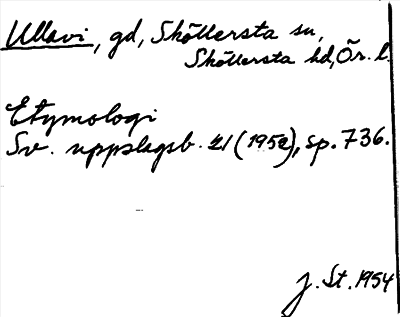 Ullavi, gd, Sköllersta sn,
Sköllersta hd, Ör. l.
Etymologi
Sv. uppslagsb. 21 (1952), sp. 736.
J. St. 1954